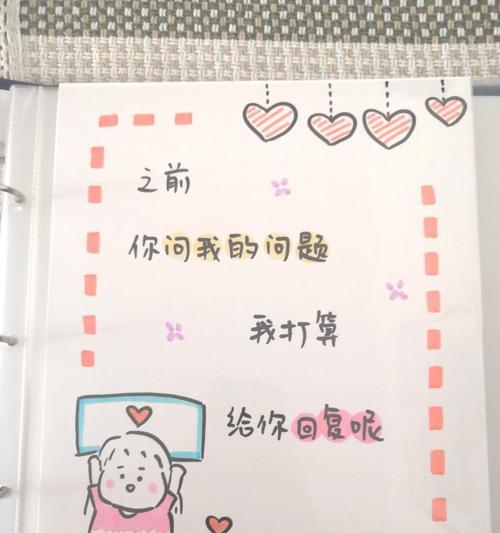 之前
你问我的问题
我打算
给你回复呢